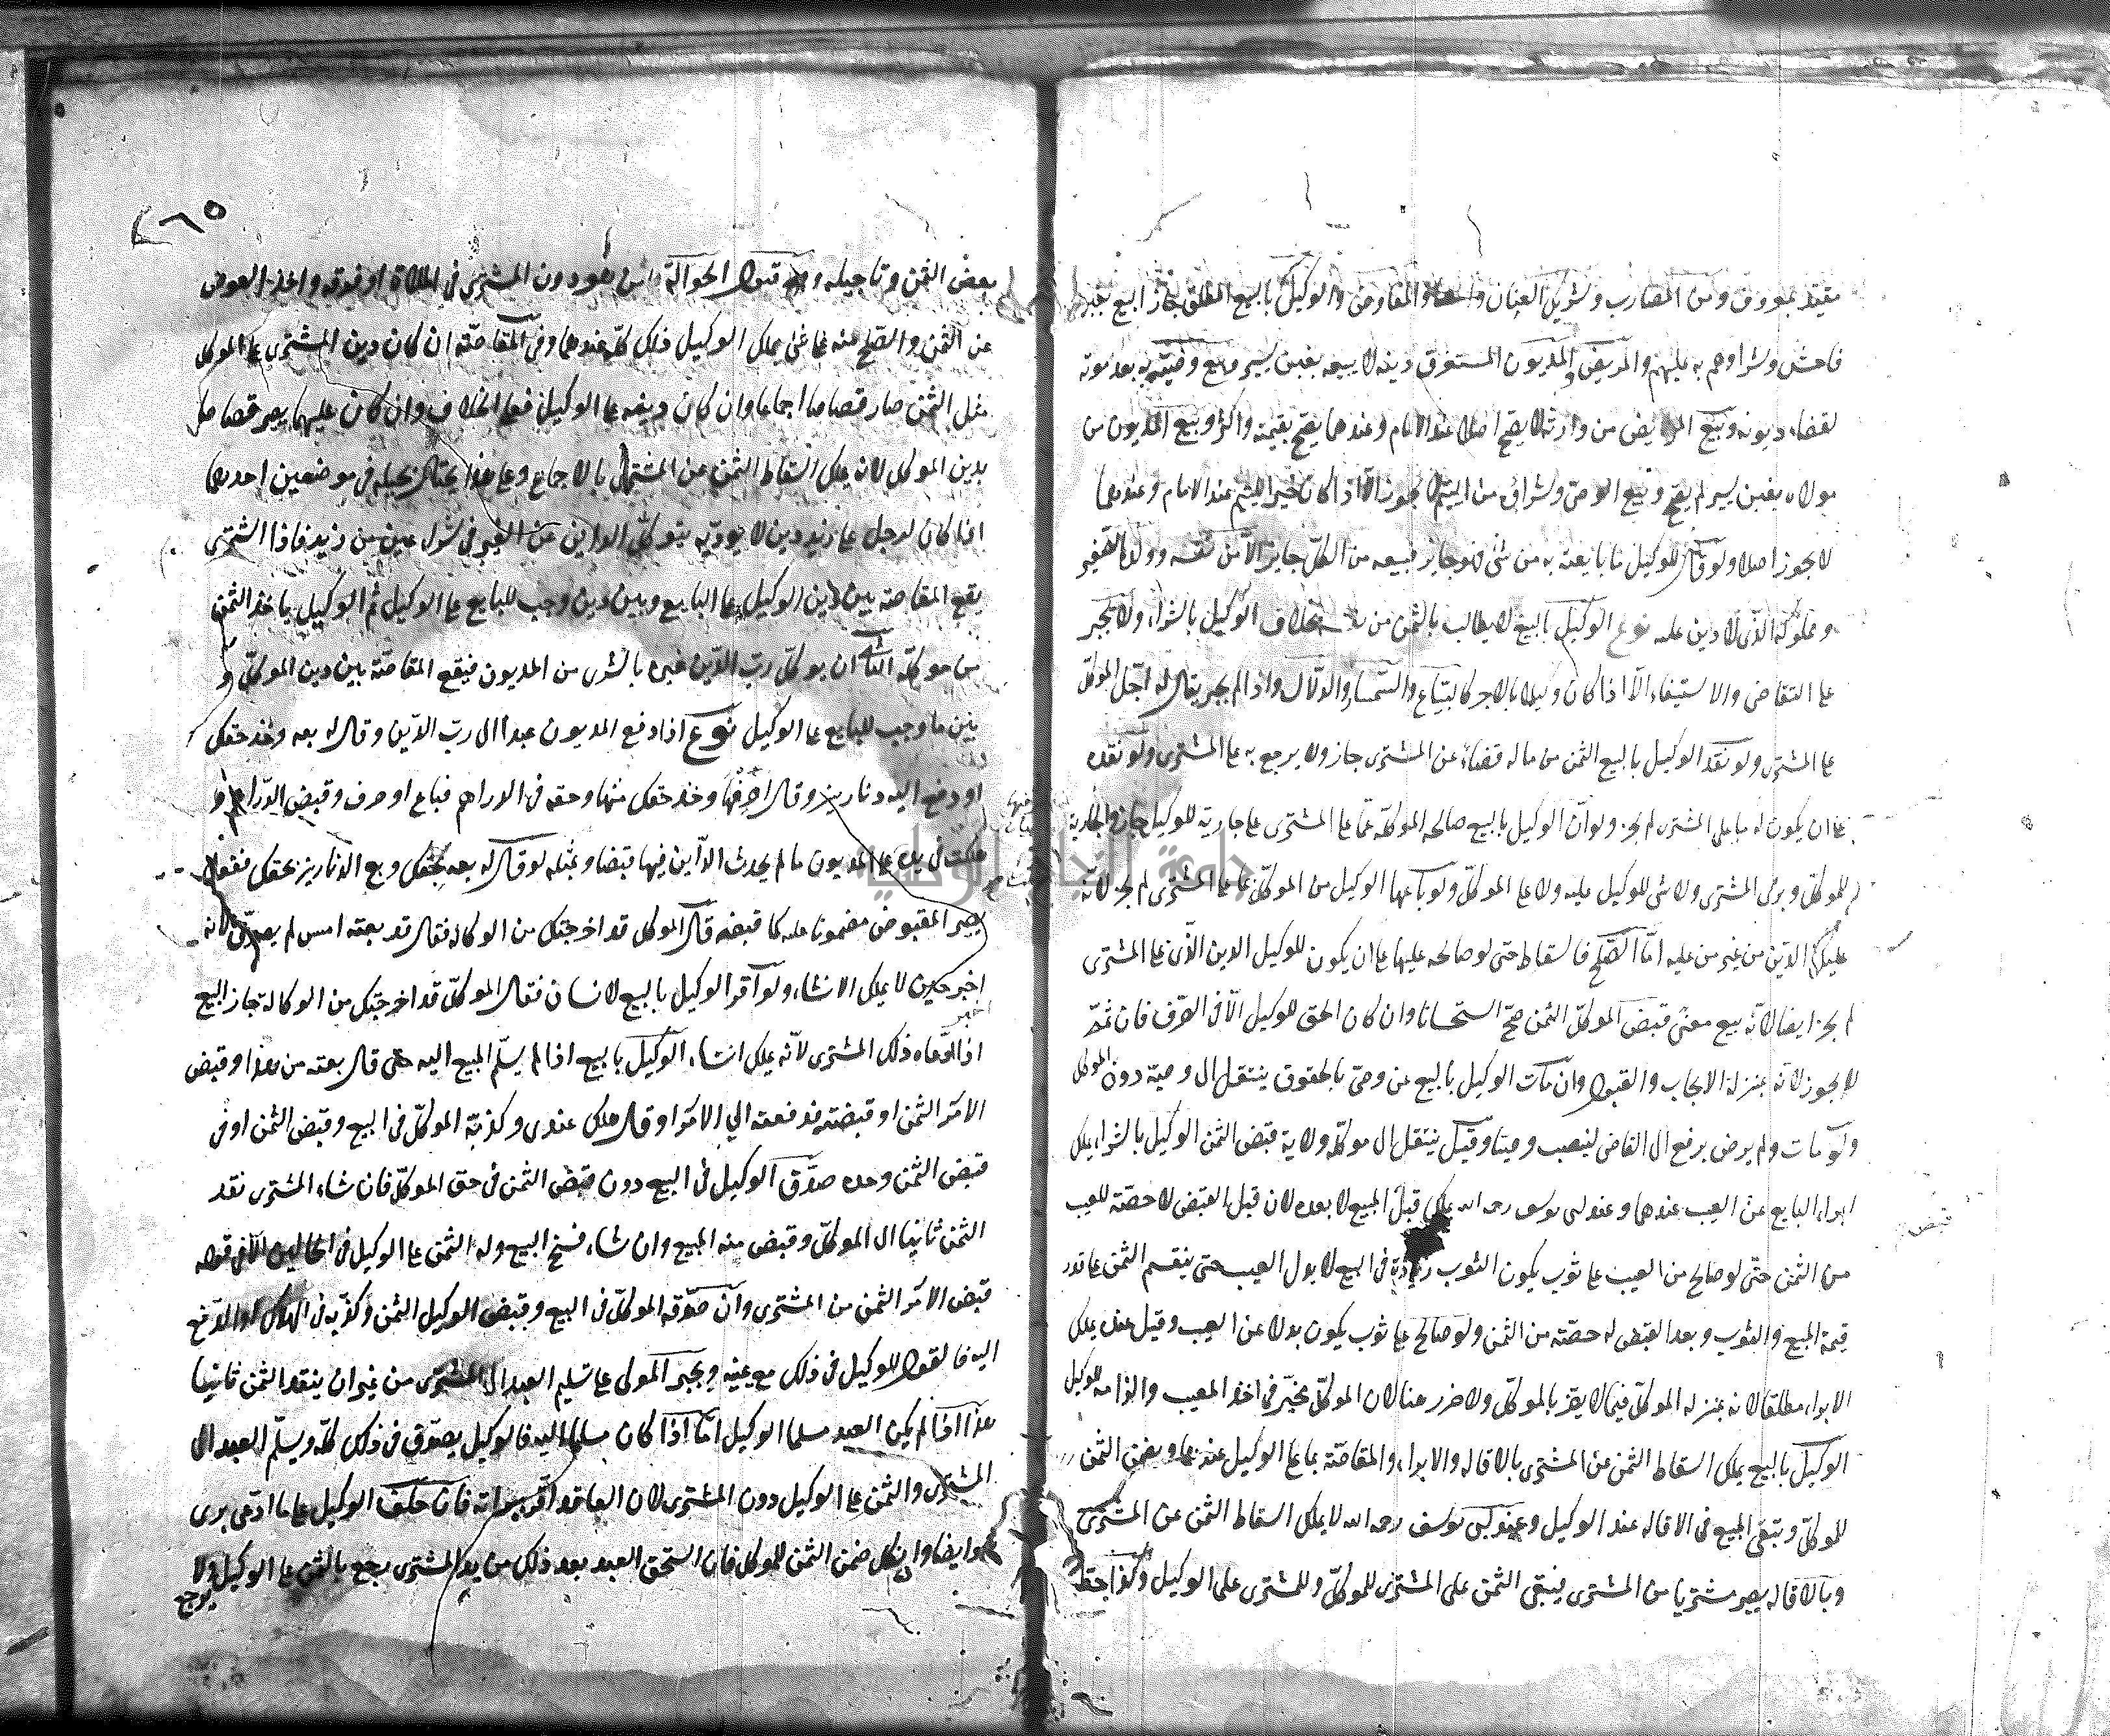 مقيد بمعروف ومن المضارب وشريك العنان والمفاوض والوكيل بالبيع المطلق جاز البيع بغبن
فاحش وشراؤهم به عليهم والمريض المديون المستغرق دينه لا يبيعه بغبن يسير وبيع وصيه به بعد موته
لقضاء ديونه وبيع المريض من وارثه لا يصح اصلا عند الامام وعندهما يصح بقيمته واكثر وبيع المديون من
مولاه بغبن يسير لم يصح وبيع الوصي وشراؤه من اليتيم لا يجوز الا اذا كان خيرا لليتيم عند الامام وعندهما
لا يجوز اصلا ولو قال للوكيل ما بايعته به من شيء فهو جايز فبيعه من الكل جايز الا من نفسه وولده الصغير
ومملوكه الذي لا دين عليه نوع الوكيل بالبيع لا يطالب بالثمن من بخلاف الوكيل بالشراء ولا يجبر
على التقاضي والاستيفاء الا اذا كان وكيلا بالاجر كالبياع والسمسار والدلال واذا لم يجبر يقال له احل الموكل
على المشتري ولو نقد الوكيل بالبيع الثمن من ماله قضاء عن المشتري جاز ولا يرجع به على المشتري ولو نقده
على ان يكون له ما على المشتري لم يجز ولو ان الوكيل بالبيع صالحه الموكل عما على المشتري على جارية للوكيل جاز والجارية
للموكل وبرئ المشتري ولا شيء للوكيل عليه ولا على الموكل ولو باعها الوكيل من الموكل بما على المشتري لم يجز لانه
تمليك الدين من غير من عليه اما الصلح فاسقاط حتى لو صالحه عليها على ان يكون للوكيل الدين الذي على المشتري
لم يجز ايضا لانه بيع معنى قبض الموكل الثمن صح استحسانا وان كان الحق للوكيل الا في الصرف فان ثمة
لا يجوز لانه بمنزلة الايجاب والقبول وان مات الوكيل بالبيع عن وصي بالحقوق ينتقل الى وصيه دون الموكل
ولو مات ولم يوص يرفع الى القاضي لينصب وصيا وقيل ينتقل الى موكله ولاية قبض الثمن الوكيل بالشراء يملك
ابراء البايع عن العيب عندهما وعند ابي يوسف رحمه الله يملك قبل المبيع لا بعده لان قبل القبض لا حصة للعيب
قبض
من الثمن حتى لو صالح من العيب على ثوب يكون الثوب زيادة في البيع لا بدل العيب حتى ينقسم الثمن على قدر
قيمة المبيع والثوب وبعد القبض له حصته من الثمن ولو صالح على ثوب يكون بدلا عن العيب وقيل عنده يملك
الابراء مطلقا لانه بمنزلة الموكل فيما لا يضر بالموكل ولا ضرر هنا لان الموكل مخير في اخذ المعيب والزامه للوكيل
الوكيل بالبيع يملك اسقاط الثمن عن المشتري بالاقالة والابراء والمقاصة بما على الوكيل عندهما ويضمن الثمن
للموكل ويبقى المبيع في الاقالة عند الوكيل وعند ابي يوسف رحمه الله لا يملك اسقاط الثمن عن المشتري
وبالاقالة يصير مشتريا من المشتري فيبقى الثمن على المشتري للموكل وللمشتري على الوكيل وكذا حط
٢٦٥
بعض الثمن وتأجيله وقبول الحوالة هو دون المشتري في الملاءة او فوقه واخذ العوض
عن الثمن والصلح عنه على شيء يملك الوكيل ذلك كله عندهما وفي المقاصة ان كان دين المشتري على الموكل
مثل الثمن صار قصاصا اجماعا وان كان دينه على الوكيل فعلى الخلاف وان كان عليهما يصير قصاصا
بدين الموكل لانه يملك اسقاط الثمن عن المشتري بالاجماع وعلى هذا يحتال بحيلة في موضعين احدهما
اذا كان لرجل على زيد دين لا يؤديه يتوكل الداين عن الغير في شراء عين من زيد فاذا اشترى
يقع المقاصة بين دين الوكيل على البايع وبين دين وجب للبايع على الوكيل ثم الوكيل ياخذ الثمن
من موكله الثاني ان يوكل رب الدين غيره بالشرى من المديون فيقع المقاصة بين دين الموكل و
بين ما وجب للبايع على الوكيل نوع اذا دفع المديون عبدا الى رب الدين وقال له بعه وخذ حقك
او دفع اليه دنانير وقال اصرفها وخذ حقك منها وحقه في الدراهم فباع او صرف وقبض الدراهم و
هلكت في يده على المديون ما لم يحدث الداين فيها قبضا وبمثله لو قال له بعه بحقك وبع الدنانير بحقك ففعل
يصير المقبوض مضمونا عليه كما قبضه قال الموكل قد اخرجتك من الوكالة فقال قد بعته امس لم يصدق لانه
اخبر حين لا يملك الانشاء ولو اقر الوكيل بالبيع لانسان فقال الموكل قد اخرجتك من الوكالة جاز البيع
اذا ادعاه ذلك المشتري لانه يملك انشاء الوكيل بالبيع اذا لم يسلم المبيع اليه حتى قال بعته من هذا وقبض
الامر الثمن او قبضته فدفعته الى الامر او قال هلك عندي وكذبه الموكل في البيع وقبض الثمن او في
قبض الثمن وحده صدق الوكيل في البيع دون قبض الثمن في حق الموكل فان شاء المشتري نقد
الثمن ثانيا الى الموكل وقبض منه المبيع وان شاء فسخ البيع وله الثمن على الوكيل في الحالين الا في قوله
قبض الامر الثمن من المشتري وان صدقه الموكل في البيع وقبض الوكيل الثمن وكذبه في الهلاك او الدفع
اليه فالقول للوكيل في ذلك مع يمينه ويجبر المولى على تسليم العبد الى المشتري من غير ان ينقد الثمن ثانيا
هذا اذا لم يكن العبد مسلما الى الوكيل اما اذا كان مسلما اليه فالوكيل يصدق في ذلك كله ويسلم العبد الى
المشتري والثمن على الوكيل دون المشتري لان العاقد اقر ببراءته فان حلف الوكيل على ما ادعى برئ
هو ايضا وان نكل ضمن الثمن للموكل فان استحق العبد بعد ذلك من يد المشتري رجع بالثمن على الوكيل ولا
يرجع